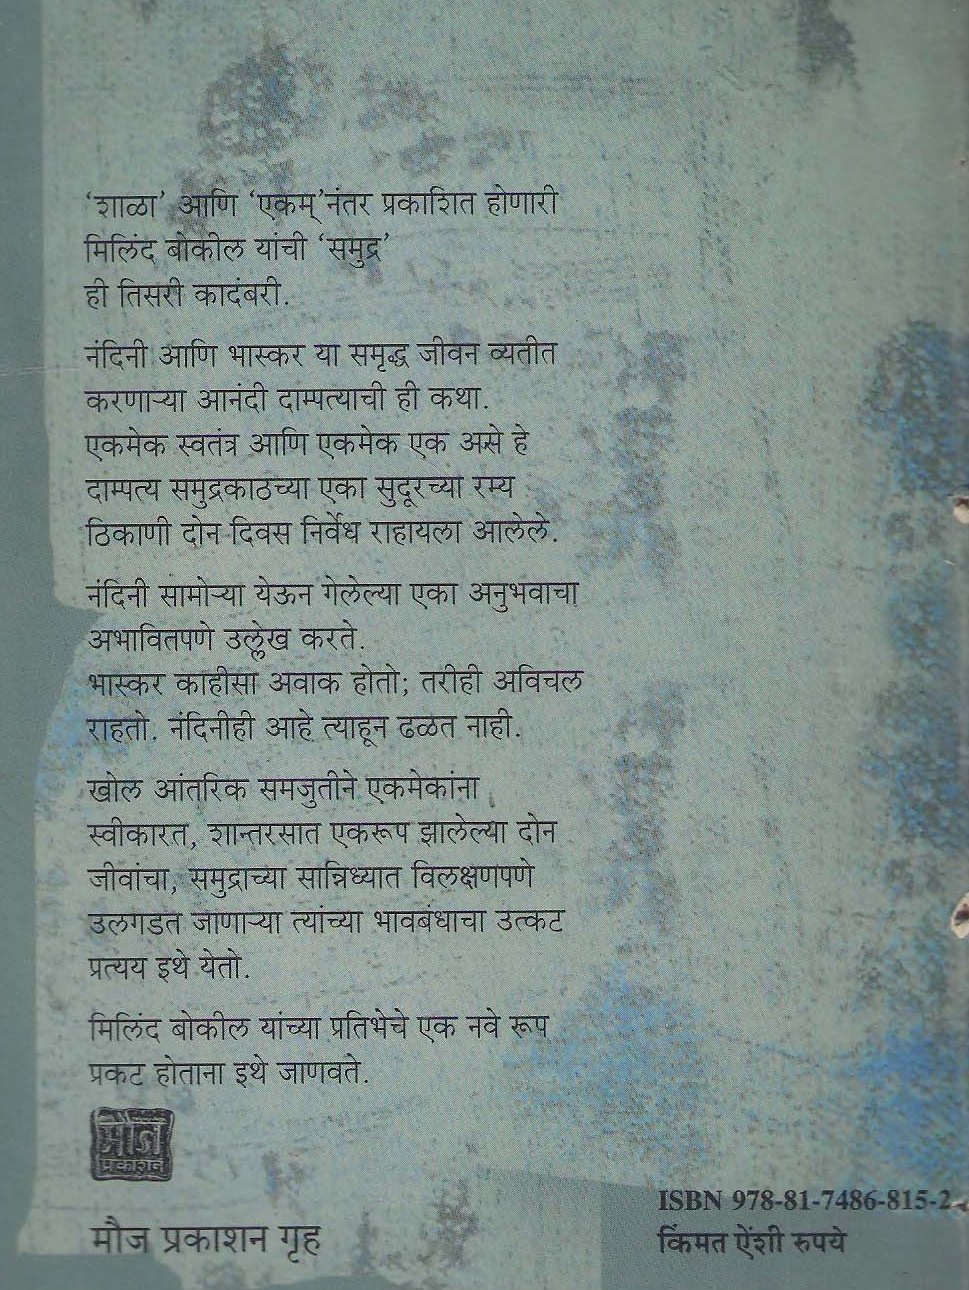 ‘शाळा’ आणि ‘एकम्’नंतर प्रकाशित होणारी
मिलिंद बोकील यांची ‘समुद्र’
ही तिसरी कादंबरी.
नंदिनी आणि भास्कर या समृद्ध जीवन व्यतीत
करणाऱ्या आनंदी दाम्पत्याची ही कथा.
एकमेक स्वतंत्र आणि एकमेक एक असे हे
दाम्पत्य समुद्रकाठच्या एका सुदूरच्या रम्य
ठिकाणी दोन दिवस निर्वेध राहायला आलेले.
नंदिनी सामोऱ्या येऊन गेलेल्या एका अनुभवाचा
अभावितपणे उल्लेख करते.
भास्कर काहीसा अवाक होतो; तरीही अविचल
राहतो. नंदिनीही आहे त्याहून ढळत नाही.
खोल आंतरिक समजुतीने एकमेकांना
स्वीकारत, शान्तरसात एकरूप झालेल्या दोन
जीवांचा, समुद्राच्या सान्निध्यात विलक्षणपणे
उलगडत जाणाऱ्या त्यांच्या भावबंधाचा उत्कट
प्रत्यय इथे येतो.
मिलिंद बोकील यांच्या प्रतिभेचे एक नवे रूप
प्रकट होताना इथे जाणवते.
मौज
प्रकाशन
मौज प्रकाशन गृह
ISBN 978-81-7486-815-2
किंमत ऐंशी रुपये